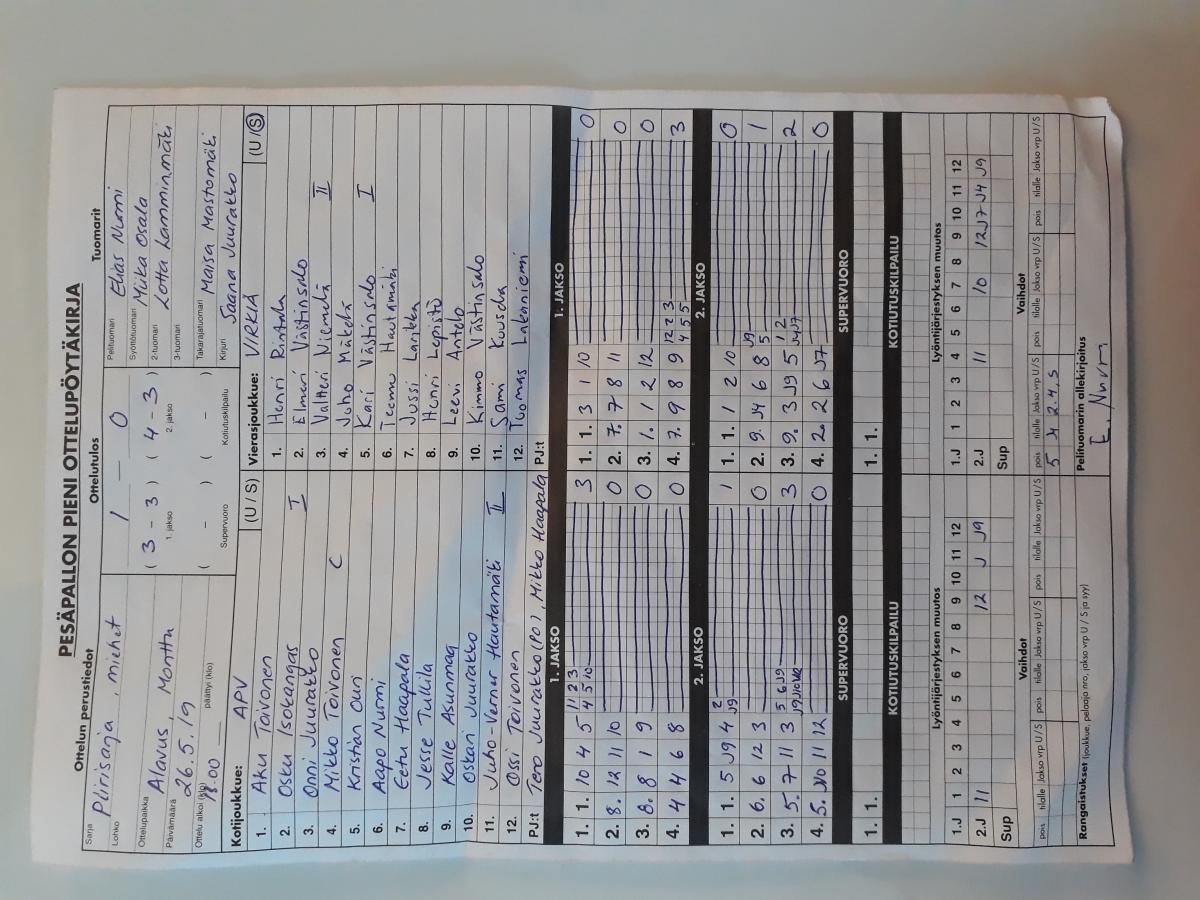 PESÄPALLON PIENI OTTELUPÖYTÄKIRJA
Ottelun perustiedot
Ottelutulos
Tuomarit
Sarja
Piirisarja, miehet
Lohko
Ottelupaikka
Alavus, Monttu
Päivämäärä
26.5.19
Ottelu alkoi (klo)
18.00
päättyi (klo)
1 — 0
( 3 - 3 ) ( 4 - 3 )
1. jakso 2. jakso
( - ) ( - )
Supervuoro Kotiutuskilpailu
Pelituomari Elias Nurmi
Syöttötuomari Miika Osala
2-tuomari Lotta Lamminmäki
3-tuomari
Takarajatuomari Maisa Mastomäki
Kirjuri Saana Juurakko
Kotijoukkue: APV (U / S)
1. Aku Toivonen
2. Osku Isokangas I
3. Onni Juurakko
4. Mikko Toivonen C
5. Kristian Ouri
6. Aapo Nurmi
7. Eetu Haapala
8. Jesse Tullila
9. Kalle Asunmaa
10. Oskari Juurakko
11. Juho-Verner Hautamäki II
12. Ossi Toivonen
PJ:t Tero Juurakko (PO), Mikko Haapala
Vierasjoukkue: VIRKIÄ (U / S)
1. Henri Rintala
2. Elmeri Västinsalo
3. Valtteri Niemelä II
4. Juho Mäkelä
5. Kari Västinsalo I
6. Teemu Hautamäki
7. Jussi Larikka
8. Henri Lepistö
9. Leevi Antelo
10. Kimmo Västinsalo
11. Sami Kuusela
12. Tuomas Lakaniemi
PJ:t
1. JAKSO
1. 1. 10 4 5 11 2 3 4 5 10 3
2. 8. 12 11 10 0
3. 8. 8 1 9 0
4. 4 4 6 8 0
1. JAKSO
1. 1. 3 1 10 0
2. 7. 7 8 11 0
3. 1. 1 2 12 0
4. 7. 9 8 9 12 2 3 4 5 5 3
2. JAKSO
1. 1. 5 J9 4 2 J9 1
2. 6. 6 12 3 0
3. 5. 7 11 3 5 6 J9 3
4. 5. J10 11 12 0
2. JAKSO
1. 1. 1 2 10 0
2. 9. J4 6 8 J9 5 1
3. 9. 3 J9 5 1 2 J4 J7 2
4. 2. 2 6 J7 0
SUPERVUORO
1. 1.
SUPERVUORO
1. 1.
KOTIUTUSKILPAILU
KOTIUTUSKILPAILU
Lyöntijärjestyksen muutos
1.J 1 2 3 4 5 6 7 8 9 10 11 12
2.J 11 12 J J9
Sup
Lyöntijärjestyksen muutos
1.J 1 2 3 4 5 6 7 8 9 10 11 12
2.J 11 10 12 J7 J4 J9
Sup
Vaihdot
pois tilalle Jakso vrp U/S pois tilalle Jakso vrp U/S pois tilalle Jakso vrp U/S
Vaihdot
pois tilalle Jakso vrp U/S pois tilalle Jakso vrp U/S pois tilalle Jakso vrp U/S
5 J1 2.4.S
Rangaistukset (joukkue, pelaaja nro, jakso vrp U / S ja syy)
Pelituomarin allekirjoitus
E. Nurmi